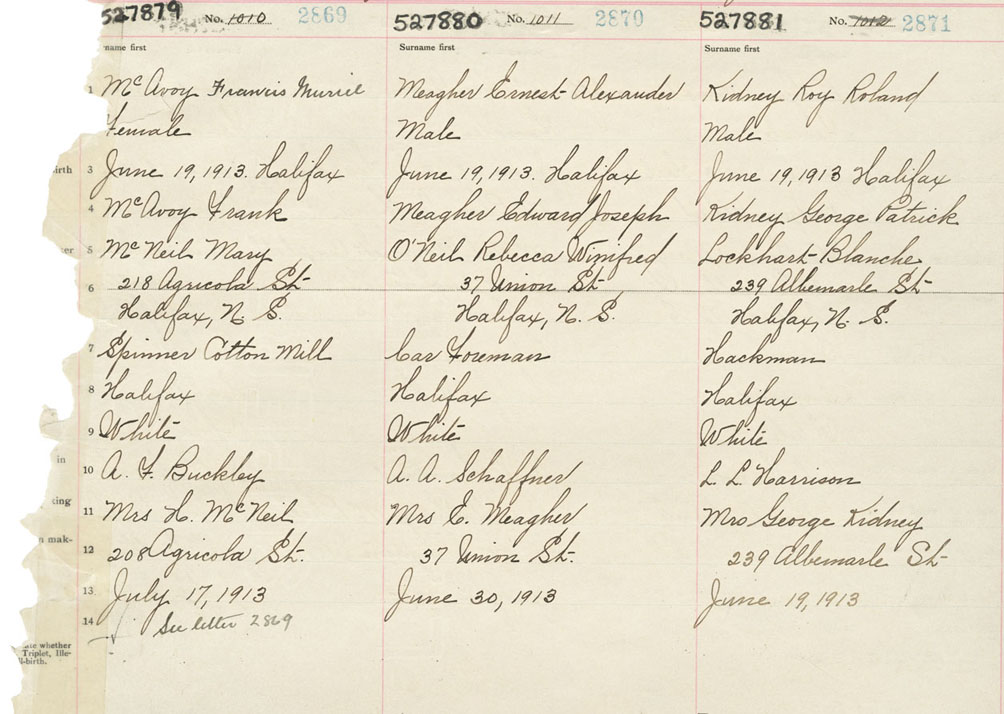 527879 No. 1010 2869
527880 No. 1011 2870
527881 No. 1012 2871
name first
Surname first
Surname first
1 McAvoy Francis Muriel
Meagher Ernest Alexander
Kidney Roy Roland
Female
Male
Male
irth 3 June 19, 1913. Halifax
June 19, 1913. Halifax
June 19, 1913 Halifax
4 McAvoy Frank
Meagher Edward Joseph
Kidney George Patrick
er 5 McNeil Mary
O'Neil Rebecca Winifred
Lockhart Blanche
6 218 Agricola St
37 Union St
239 Albemarle St
Halifax, N. S.
Halifax, N. S.
Halifax, N. S.
7 Spinner Cotton Mill
Car Foreman
Hackman
8 Halifax
Halifax
Halifax
9 White
White
White
in 10 A. F. Buckley
A. A. Schaffner
L. L Harrison
king 11 Mrs H. McNeil
Mrs E. Meagher
Mrs George Kidney
n mak-
12 208 Agricola St.
37 Union St.
239 Albemarle St
13 July 17, 1913
June 30, 1913
June 19, 1913
14 See letter 2869
ate whether
Triplet, Ille-
ll-birth.